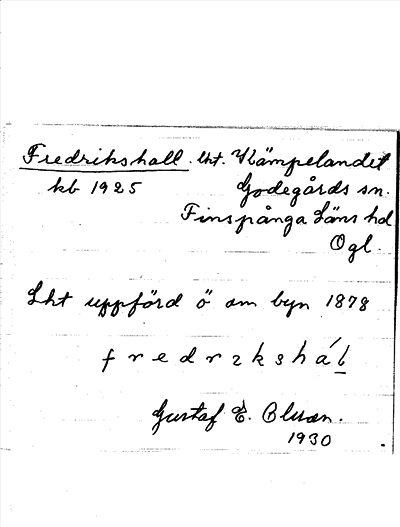 Fredrikshall. lht. Kämpelandet
kb 1925 Godegårds sn.
Finspånga Läns hd
Ögl.
Lht uppförd ö om byn 1878
fredrıkshá̀l
Gustaf E.
1930